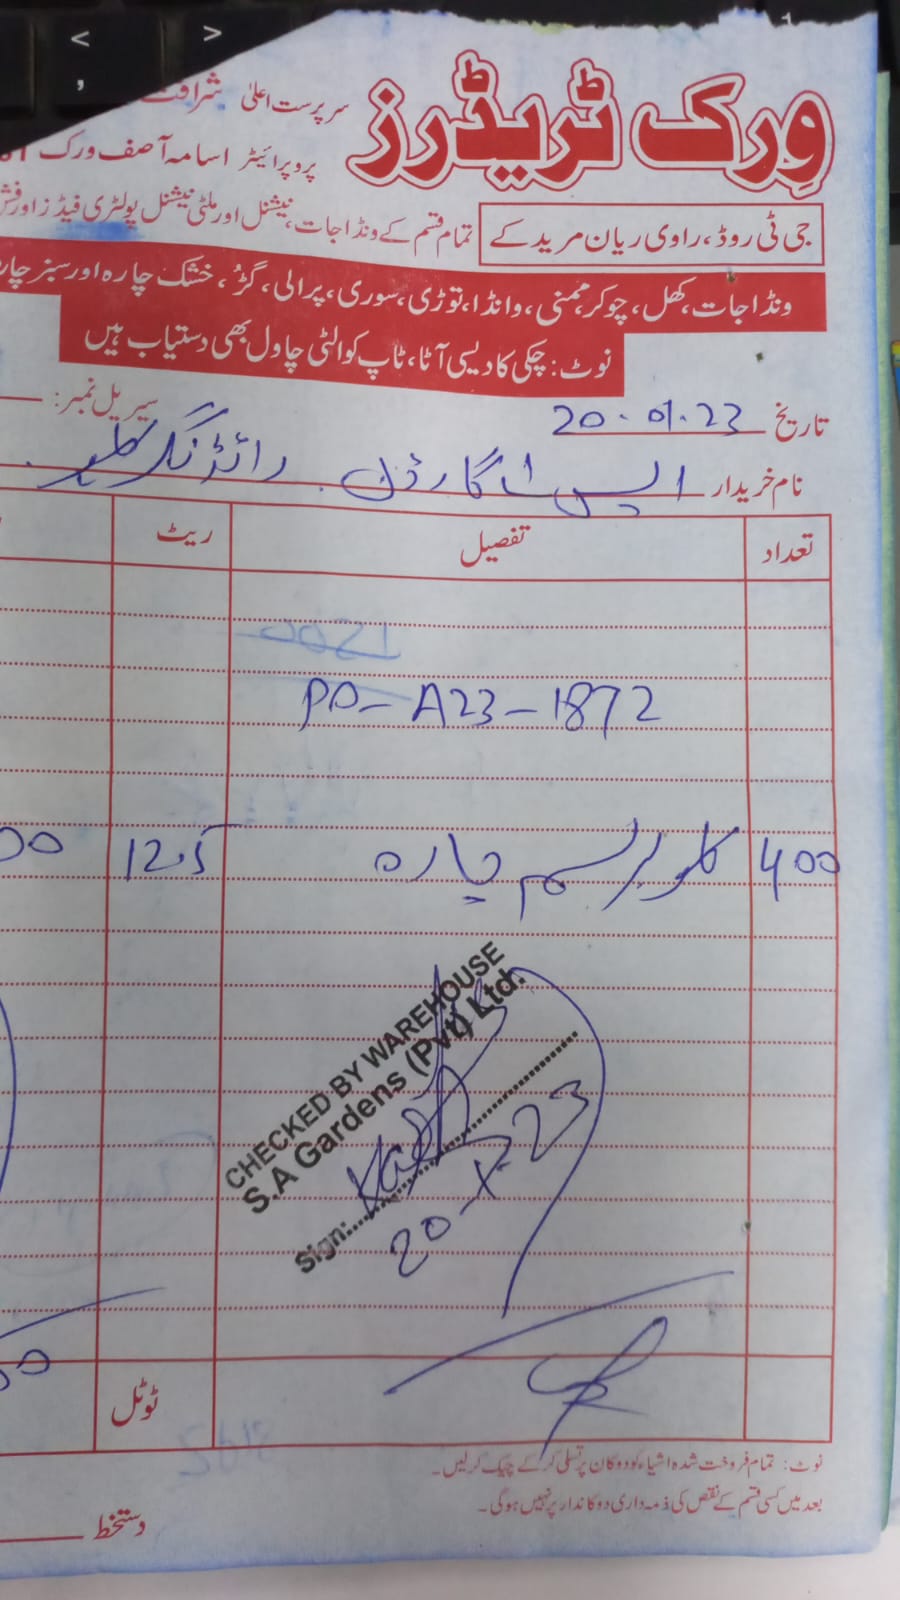 وِرک ٹریڈرز
سرپرست اعلیٰ شرافت
پروپرائیٹر اسامہ آصف ورک
جی ٹی روڈ، راوی ریان مریدکے
تمام قسم کے ونڈا جات، نیشنل اور ملٹی نیشنل پولٹری فیڈز اور فش
ونڈا جات، کھل، چوکر، ممنی، وانڈا، توڑی، سوری، پرالی، گڑ، خشک چارہ اور سبز چارہ
نوٹ: چکی کا دیسی آٹا، ٹاپ کوالٹی چاول بھی دستیاب ہیں
تاریخ 20-01-23 سیریل نمبر:
نام خریدار ایس اے گارڈن رائڈنگ کلب
تعداد تفصیل ریٹ
PO-A23-1872
400 کلو برسم چارہ 125 00
CHECKED BY WAREHOUSE
S.A Gardens (Pvt) Ltd.
Sign:
20-1-23
ٹوٹل 00
نوٹ: تمام فروخت شدہ اشیاء کو دوکان پر تسلی کر کے چیک کر لیں۔
بعد میں کسی قسم کے نقص کی ذمہ داری دوکاندار پر نہیں ہوگی۔
دستخط